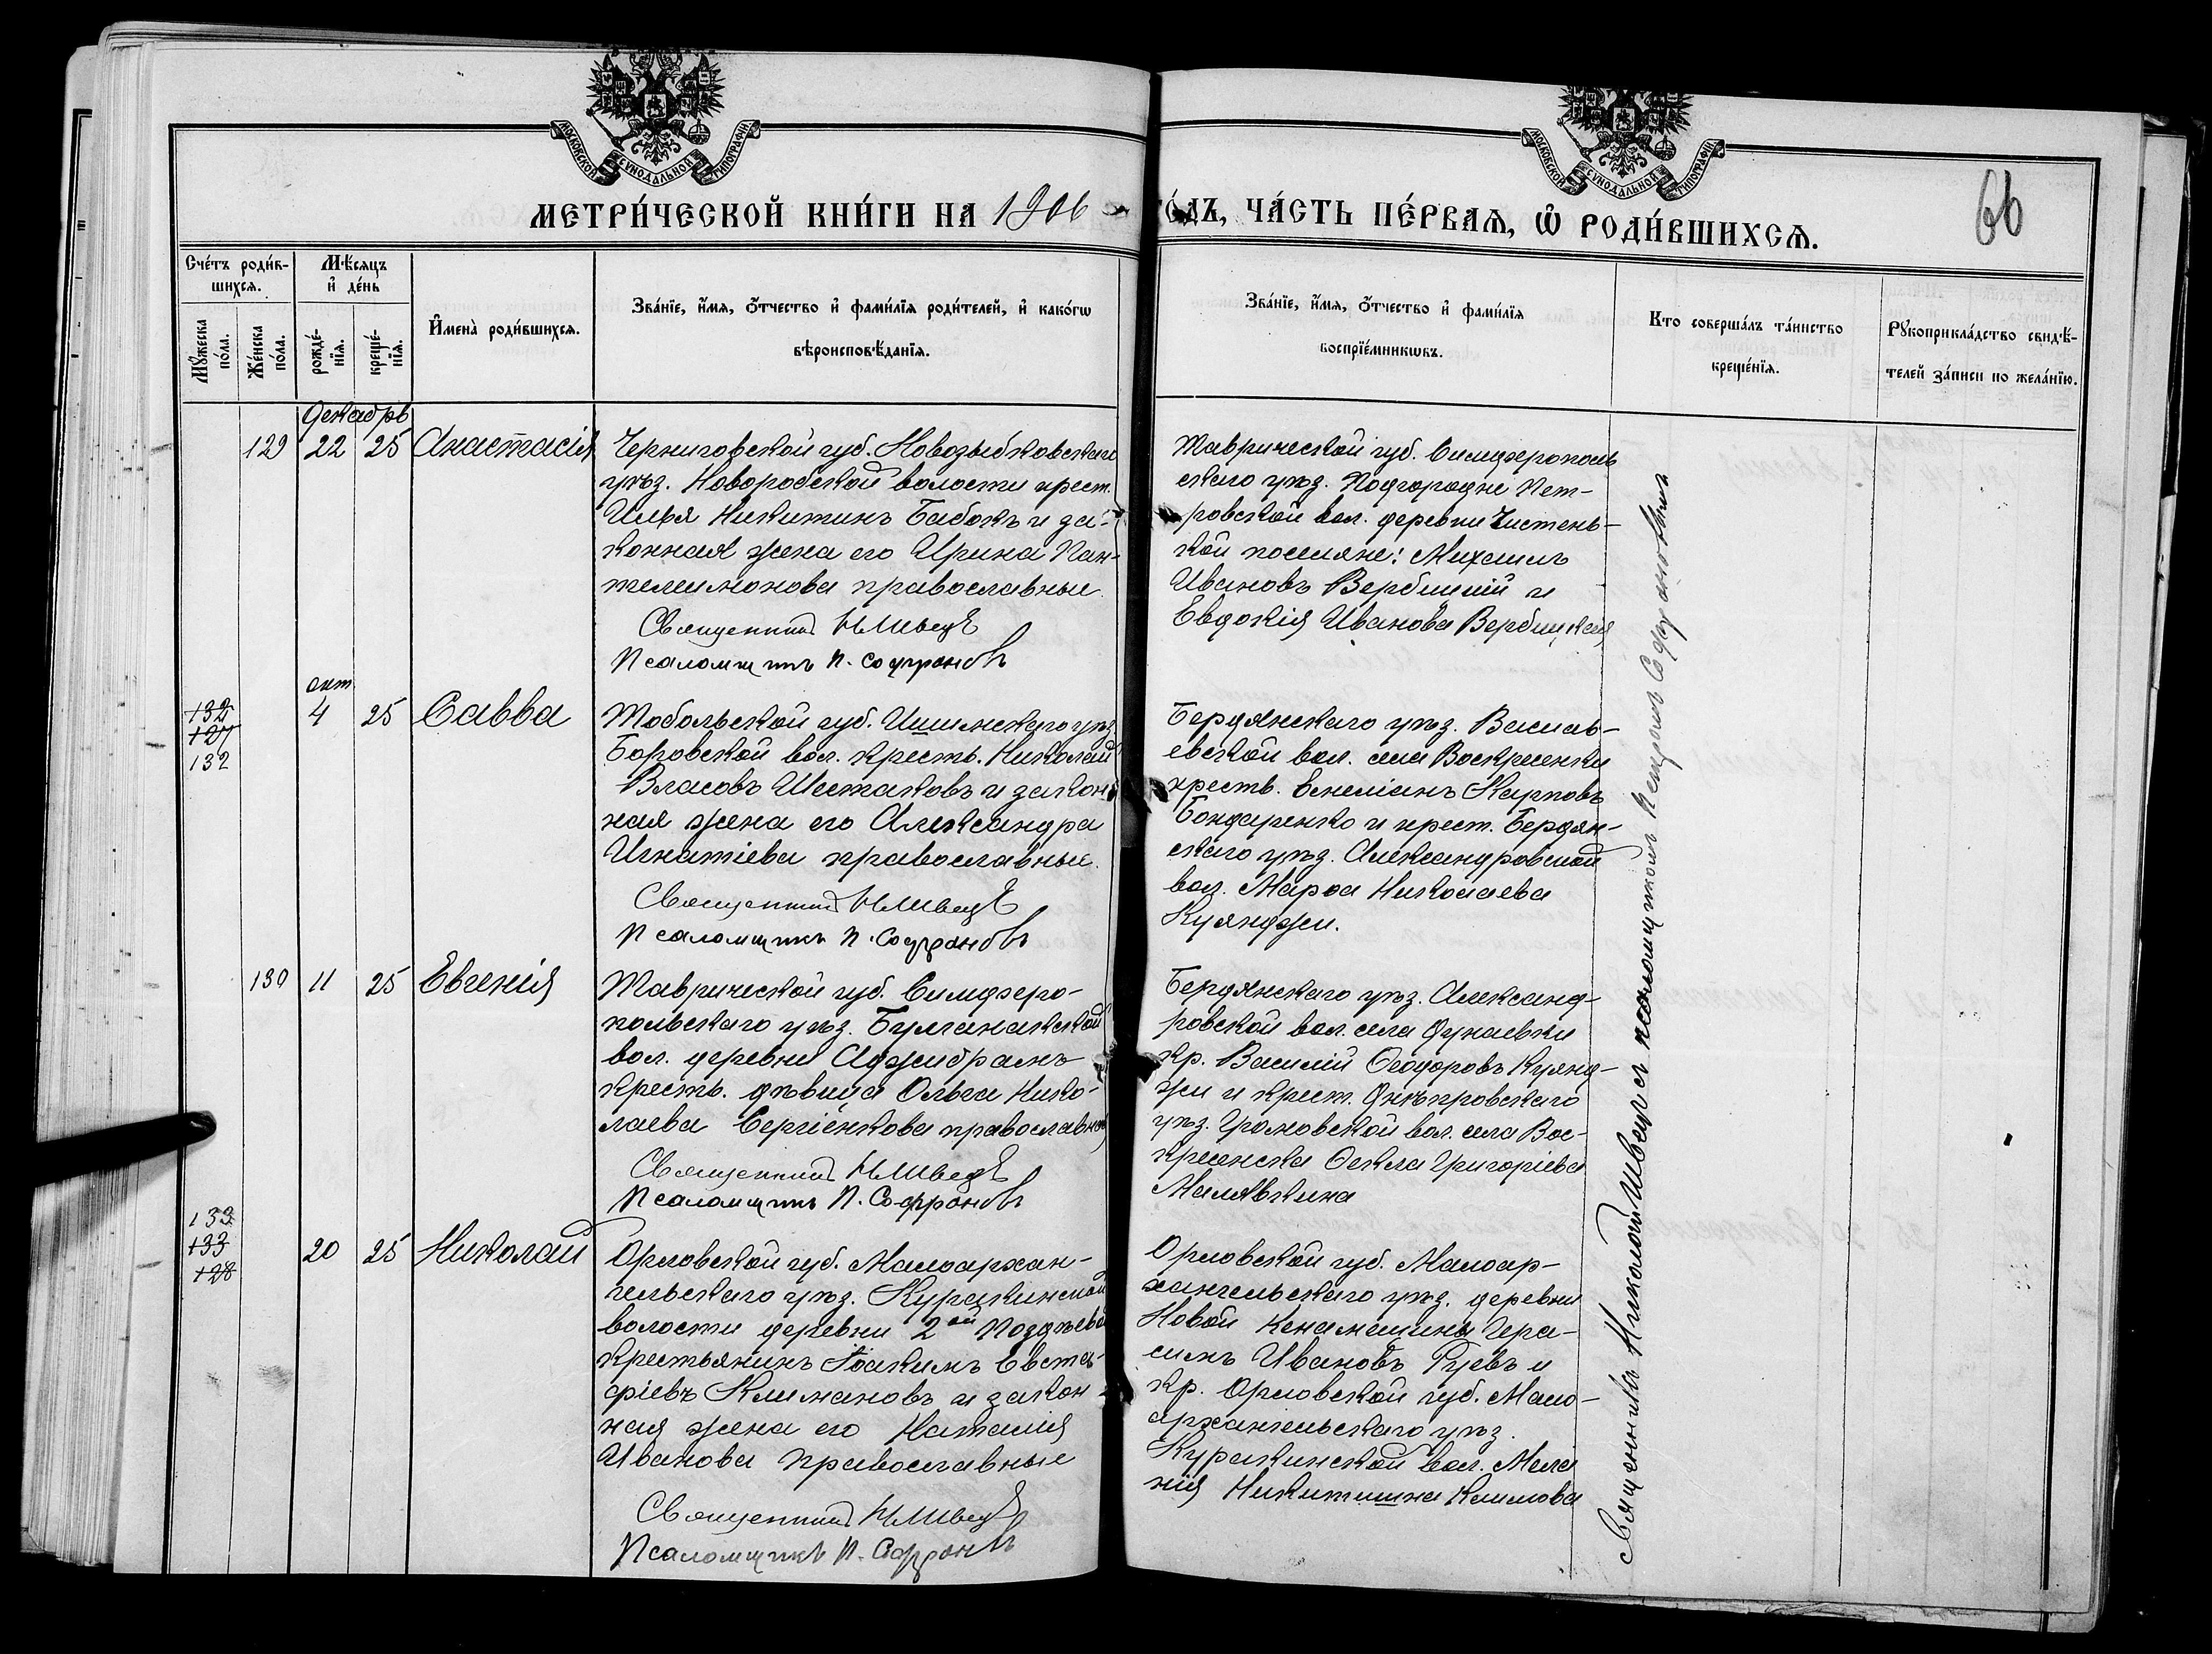 МОСКОВСКОЙ СѴНОДАЛЬНОЙ ТИПОГРАФІИ
МОСКОВСКОЙ СѴНОДАЛЬНОЙ ТИПОГРАФІИ
МЕТРИ́ЧЕСКОЙ КНИ́ГИ НА 1906 ГО́ДЪ, ЧА́СТЬ ПЕ́РВАѦ, Ѡ҆ РОДИ́ВШИХСѦ.
66
Сче́тъ роди́в-
шихсѧ.
Мꙋ́жеска по́ла.
Же́нска по́ла.
Мѣ́сяцъ
и҆ де́нь
рожде́-
нїѧ.
креще́-
нїѧ.
И҆мена̀ роди́вшихсѧ.
Зва́нїе, и҆́мѧ, ѻ҆́тчество и҆ фами́лїѧ роди́телей, и҆ како́гѡ
вѣроисповѣ́данїѧ.
Зва́нїе, и҆́мѧ, ѻ҆́тчество и҆ фами́лїѧ
воспрїе́мникѡвъ.
Кто соверша́лъ та́инство
креще́нїѧ.
Рꙋкоприкла́дство свидѣ́-
телей за́писи по жела́нїю.
Декабрь
129 22 25 Анастасія
Черниговской губ. Новозыбковскаго
уѣз. Новоробской волости крест.
Илья Никитинъ Бабокъ и за-
конная жена его Ирина Пан-
телеимонова православные.
Священникъ Н. Швецъ
Псаломщикъ П. Софроновъ
Таврической губ. Симферополь
скаго уѣз. Подгородне Пет-
ровской вол. деревни Чистень-
кой поселяне: Михаилъ
Ивановъ Вербицкій и
Евдокія Иванова Вербицкая
132
127
132
окт.
4 25 Савва
Тобольской губ. Ишимскаго уѣз.
Боровской вол. кресть. Николай
Власовъ Шестаковъ и закон
ная жена его Александра
Игнатіева православные.
Священникъ Н. Швецъ
Псаломщикъ П. Софроновъ
Бердянскаго уѣз. Василь-
евской вол. села Воскресенки
кресть. Емеліанъ Карповъ
Бондаренко и крест. Бердян-
скаго уѣз. Александровской
вол. Марѳа Николаева
Куянджи.
130 11 25 Евгенія
Таврической губ. Симферо-
польскаго уѣз. Булганакской
вол. деревни Аджибрамъ
кресть. дѣвица Ольга Нико-
лаева Сергіенкова православной
Священникъ Н. Швецъ
Псаломщикъ П. Софроновъ
Бердянскаго уѣз. Александ-
ровской вол. села Дунаевки
Кр. Василій Ѳеодоровъ Куянд-
жи и крест. Днѣпровскаго
уѣз. Громовской вол. села Вос-
кресенска Ѳекла Григоріева
133
133
128
20 25 Николай
Орловской губ. Малоархан-
гельскаго уѣз. Куракинской
волости деревни 2ой Поздѣевой
крестьянинъ Іоакимъ Евста-
фіевъ Климановъ и закон
ная жена его Наталія
Иванова православные
Священникъ Н. Швецъ
Псаломщикъ П. Софроновъ
Орловской губ. Малоар-
хангельскаго уѣз. деревни
Новой Гера-
симъ Ивановъ и
Кр. Орловской губ. Мало-
архангельскаго уѣз.
Куракинской вол. Мела
нія Никитишна Климова
Священникъ Николай Швецъ съ псаломщикомъ Петромъ Софроновымъ